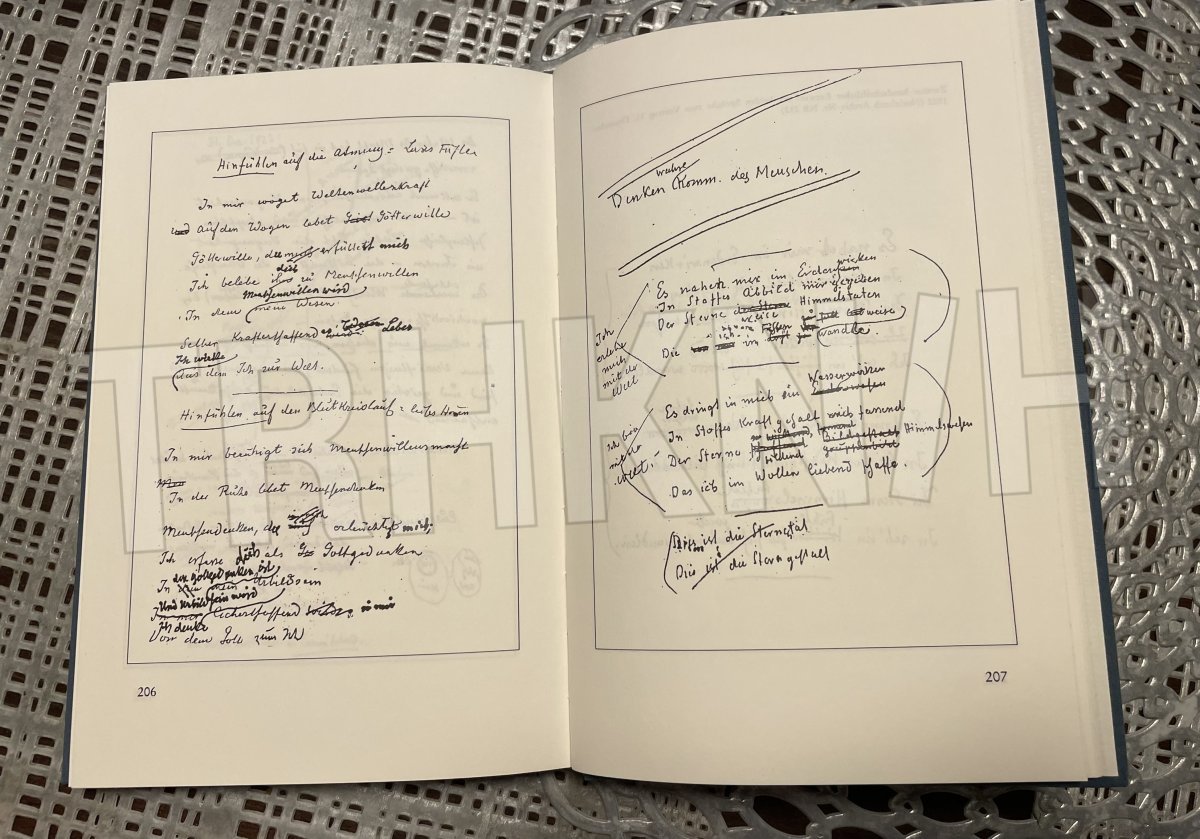 Hinfühlen auf die Atmung =
In mir woget Weltenwellenkraft
und Auf den Wogen lebet Götterwille
Götterwille, der erfüllet mich
Ich belebe dies zu Menschenwillen
Menschenwillen wird
In dem mein Wesen
Selber Krafterschaffend
Ich wirke
aus dem Ich zur Welt.
Hinfühlen auf den Blutkreislauf =
In mir beruhigt sich Menschenwillensmacht
In der Ruhe lebet Menschendenken
Menschendenken, das erleuchtet mich;
Ich erfasse dich als Gottgedanken
der Gottgedanken ist
In mein Urbildsein
Und Urbildsein wird
Lichterschaffend in mir
Ich denke
Von dem Gott zum Ich
206
wahre
Denken Komm. des Menschen.
Es nahet mir im Erden wirken
In Stoffes Abbild mir gegeben
Der Sterne Himmelstaten
Die wandle
Ich erlebe mich mit der Welt
Wasserwirken
Es dringt in mich ein
In Stoffes Kraftgestalt mich fassend
Der Sterne Himmelswesen
willend
Das ich im Wollen liebend schaffe.
Ich bin mit der Welt
Dies ist die Sternetat
Dies ist die Sterngestalt
207
TRHKN/H